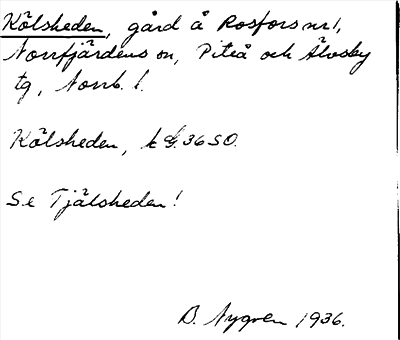 Kölsheden, gård å Rosfors nr 1,
Norrfjärdens sn, Piteå och Älvsby
tg, Norrb. l.
Kölsheden, k G. 36 SO.
Se Tjälsheden!
B. Nygren 1936.